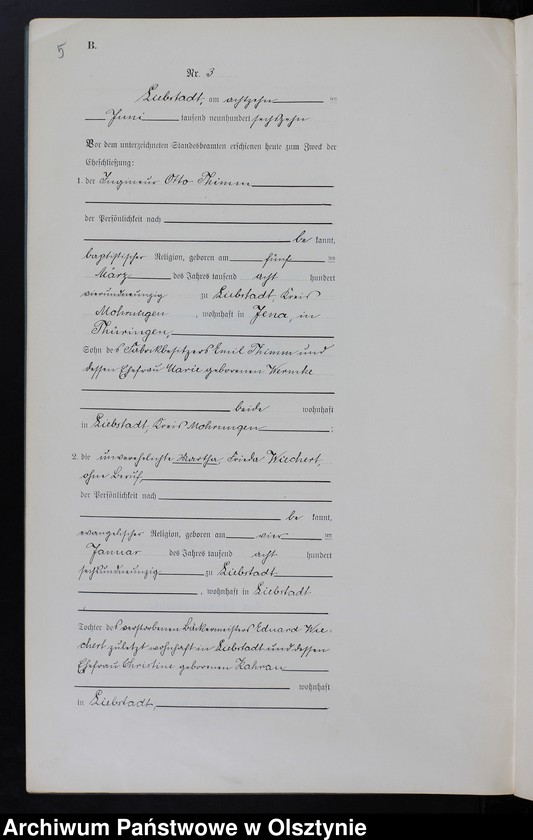 5
B.
Nr. 3
Liebstadt, am achtzehn ten
Juni tausend neunhundert sechszehn
Vor dem unterzeichneten Standesbeamten erschienen heute zum Zweck der
Eheschließung:
1. der Ingenieur Otto Thimm
der Persönlichkeit nach
be kannt,
baptistischer Religion, geboren am fünf ten
März des Jahres tausend acht hundert
vierundneunzig zu Liebstadt, Kreis
Mohrungen, wohnhaft in Jena, in
Thüringen,
Sohn des Fabrikbesitzers Emil Thimm und
dessen Ehefrau Marie geborenen Wermke
beide wohnhaft
in Liebstadt, Kreis Mohrungen;
2. die unverehelichte Martha Frieda Wiechert,
ohne Beruf,
der Persönlichkeit nach
be kannt,
evangelischer Religion, geboren am vier ten
Januar des Jahres tausend acht hundert
sechsundneunzig zu Liebstadt
, wohnhaft in Liebstadt
Tochter des verstorbenen Bäckermeisters Eduard Wie-
chert zuletzt wohnhaft in Liebstadt und dessen
Ehefrau Christine geborenen
wohnhaft
in Liebstadt,
Archiwum Państwowe w Olsztynie